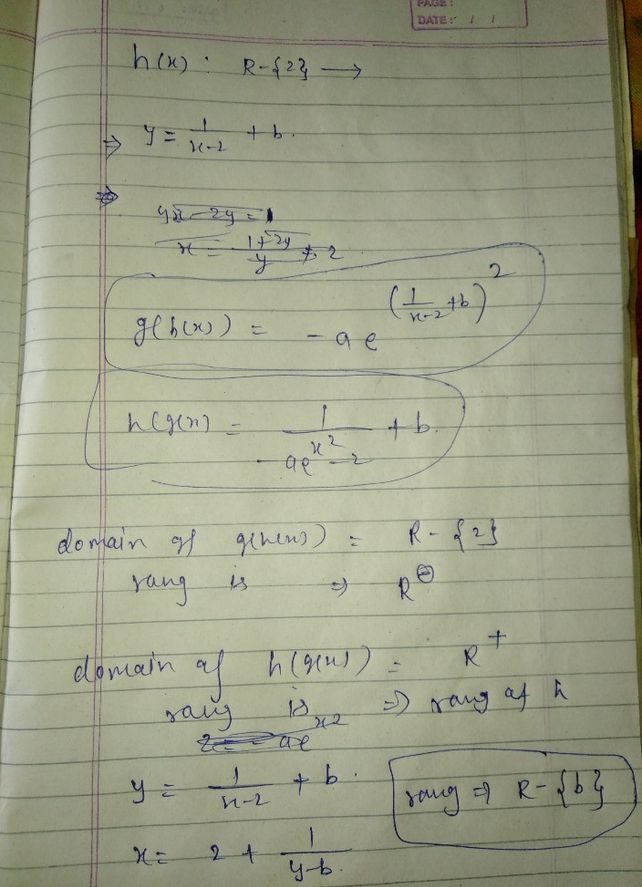 PAGE:
DATE: / /
h(x) : R-{2} →
⇒ y = 1/(x-2) + b.
⇒
yx - 2y = 1
x = (1+2y)/y ≠ 2
g(h(x)) = -ae^(1/(x-2) + b)^2
h(g(x)) = 1/(-ae^x^2 - 2) + b.
domain of g(h(x)) = R - {2}
rang is ⇒ R^⊖
domain of h(g(x)) = R^+
rang is ⇒ rang of h
y = 1/(x-2) + b.
rang ⇒ R-{b}
x = 2 + 1/(y-b).